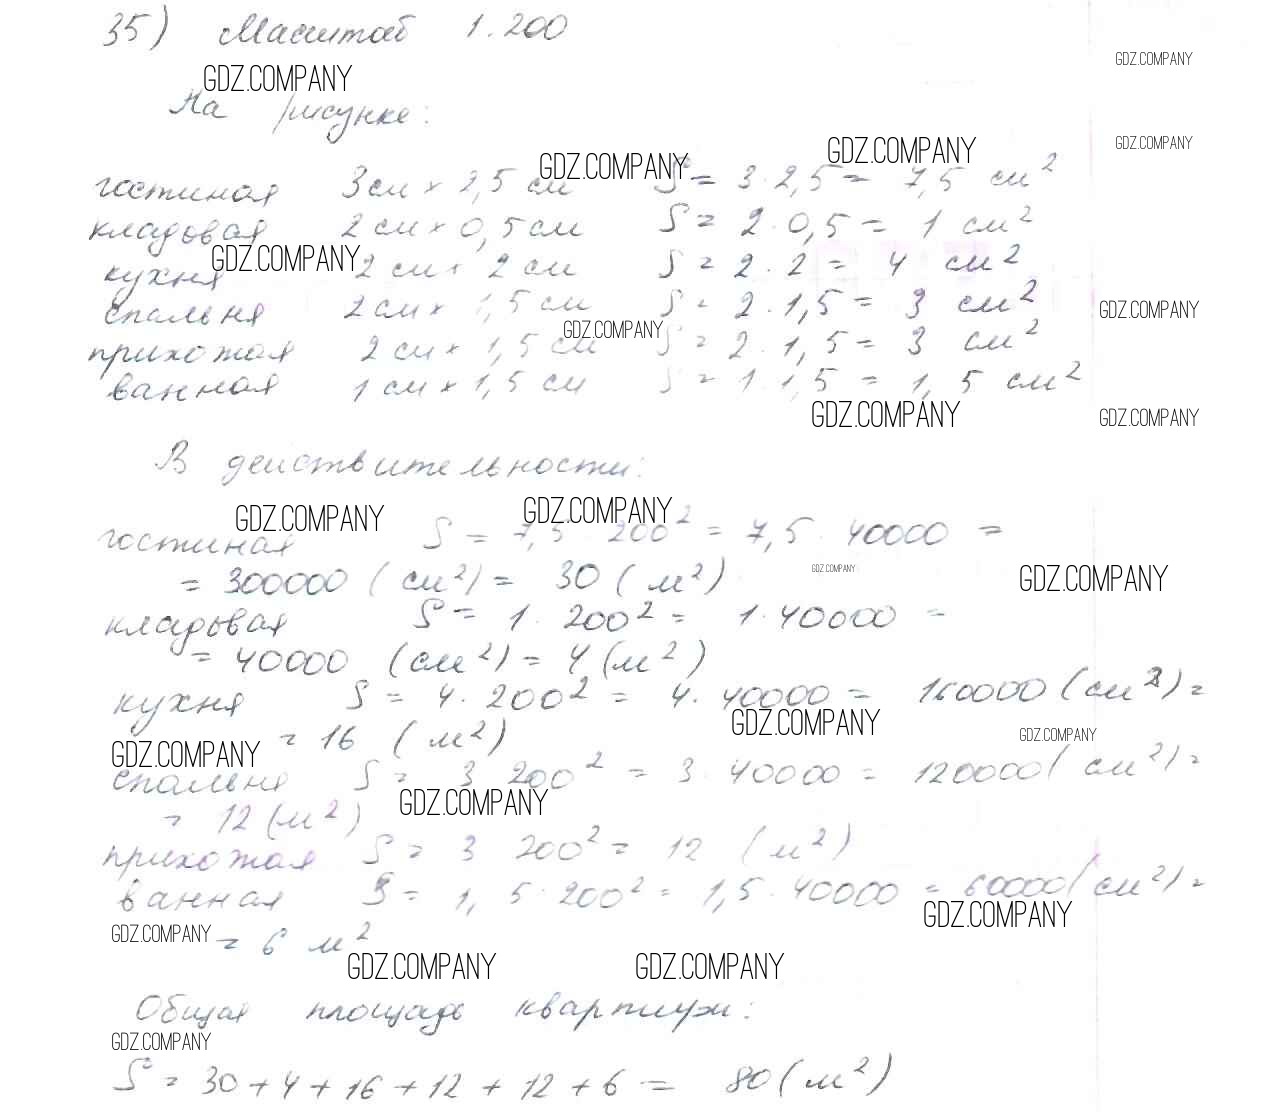 35) Масштаб 1:200
GDZ.COMPANY
GDZ.COMPANY
На рисунке:
GDZ.COMPANY
GDZ.COMPANY
GDZ.COMPANY
гостиная 3 см × 2,5 см S = 3 · 2,5 = 7,5 см²
кладовая 2 см × 0,5 см S = 2 · 0,5 = 1 см²
GDZ.COMPANY
кухня 2 см × 2 см S = 2 · 2 = 4 см²
спальня 2 см × 1,5 см S = 2 · 1,5 = 3 см²
GDZ.COMPANY
GDZ.COMPANY
прихожая 2 см × 1,5 см S = 2 · 1,5 = 3 см²
ванная 1 см × 1,5 см S = 1 · 1,5 = 1,5 см²
GDZ.COMPANY
GDZ.COMPANY
В действительности:
GDZ.COMPANY
GDZ.COMPANY
гостиная S = 7,5 · 200² = 7,5 · 40000 =
= 300000 (см²) = 30 (м²)
GDZ.COMPANY
GDZ.COMPANY
кладовая S = 1 · 200² = 1 · 40000 =
= 40000 (см²) = 4 (м²)
кухня S = 4 · 200² = 4 · 40000 = 160000 (см²) =
GDZ.COMPANY
= 16 (м²)
GDZ.COMPANY
GDZ.COMPANY
спальня S = 3 200² = 3 · 40000 = 120000 (см²) =
GDZ.COMPANY
= 12 (м²)
прихожая S = 3 200² = 12 (м²)
ванная S = 1,5 · 200² = 1,5 · 40000 = 60000 (см²) =
GDZ.COMPANY
GDZ.COMPANY
= 6 м²
GDZ.COMPANY
GDZ.COMPANY
Общая площадь квартиры:
GDZ.COMPANY
S = 30 + 4 + 16 + 12 + 12 + 6 = 80 (м²)